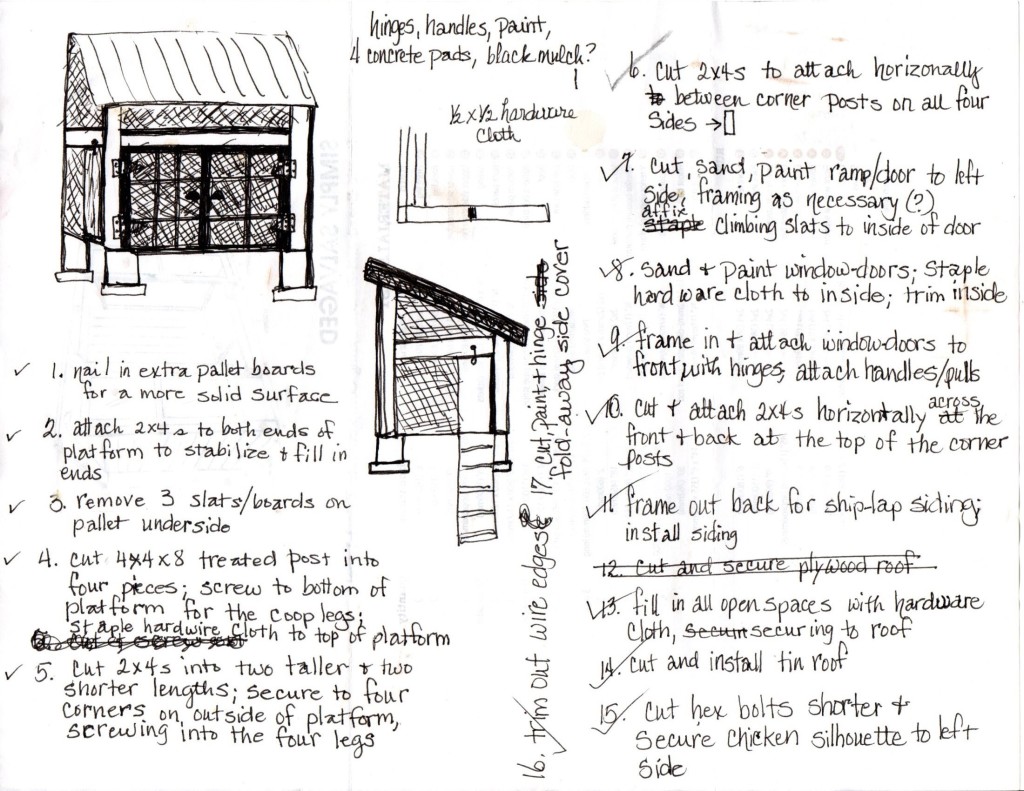 hinges, handles, paint,
4 concrete pads, black mulch?
1/2 x 1/2 hardware
cloth
✓ 1. nail in extra pallet boards
for a more solid surface
✓ 2. attach 2x4s to both ends of
platform to stabilize + fill in
ends
✓ 3. remove 3 slats/boards on
pallet underside
✓ 4. cut 4x4x8 treated post into
four pieces; screw to bottom of
platform for the coop legs;
staple hardwire cloth to top of platform
✓ 5. cut 2x4s into two taller + two
shorter lengths; secure to four
corners on outside of platform,
screwing into the four legs
✓ 6. cut 2x4s to attach horizonally
to between corner posts on all four
sides → ▯
✓ 7. cut, sand, paint ramp/door to left
side, framing as necessary (?)
affix
staple climbing slats to inside of door
✓ 8. sand + paint window-doors; staple
hardware cloth to inside; trim inside
✓ 9. frame in + attach window-doors to
front with hinges; attach handles/pulls
✓ 10. cut + attach 2x4s horizontally across at the
front + back at the top of the corner
posts
✓ 11. frame out back for ship-lap siding;
install siding
12. cut and secure plywood roof
✓ 13. fill in all open spaces with hardware
cloth, securin securing to roof
✓ 14. cut and install tin roof
✓ 15. cut hex bolts shorter +
secure chicken silhouette to left
side
✓ 16. trim out wire edges
17. cut, paint, + hinge side
fold-away side cover